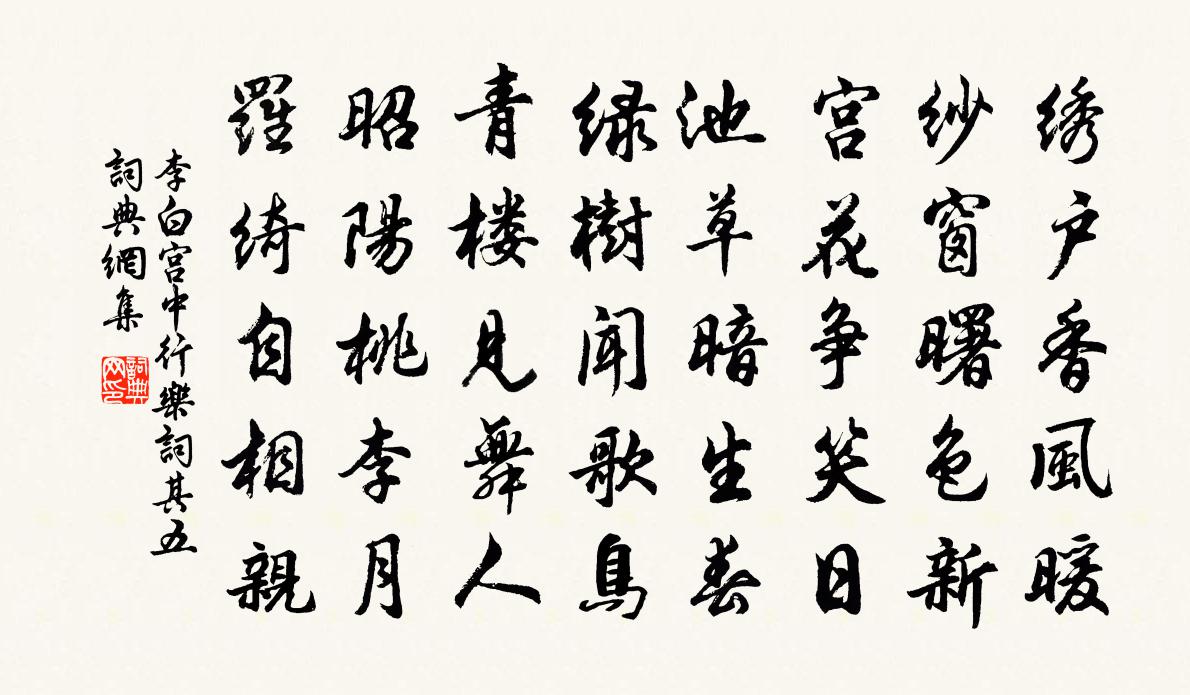 绣户香風暖
紗窗曙色新
宫花争笑日
池草暗生春
绿樹聞歌鳥
青楼見舞人
昭陽桃李月
羅绮自相親
李白宫中行樂詞其五
詞典網集
詞典网印